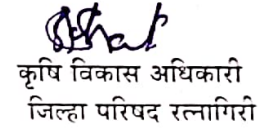 कृषि विकास अधिकारी
जिल्हा परिषद रत्नागिरी